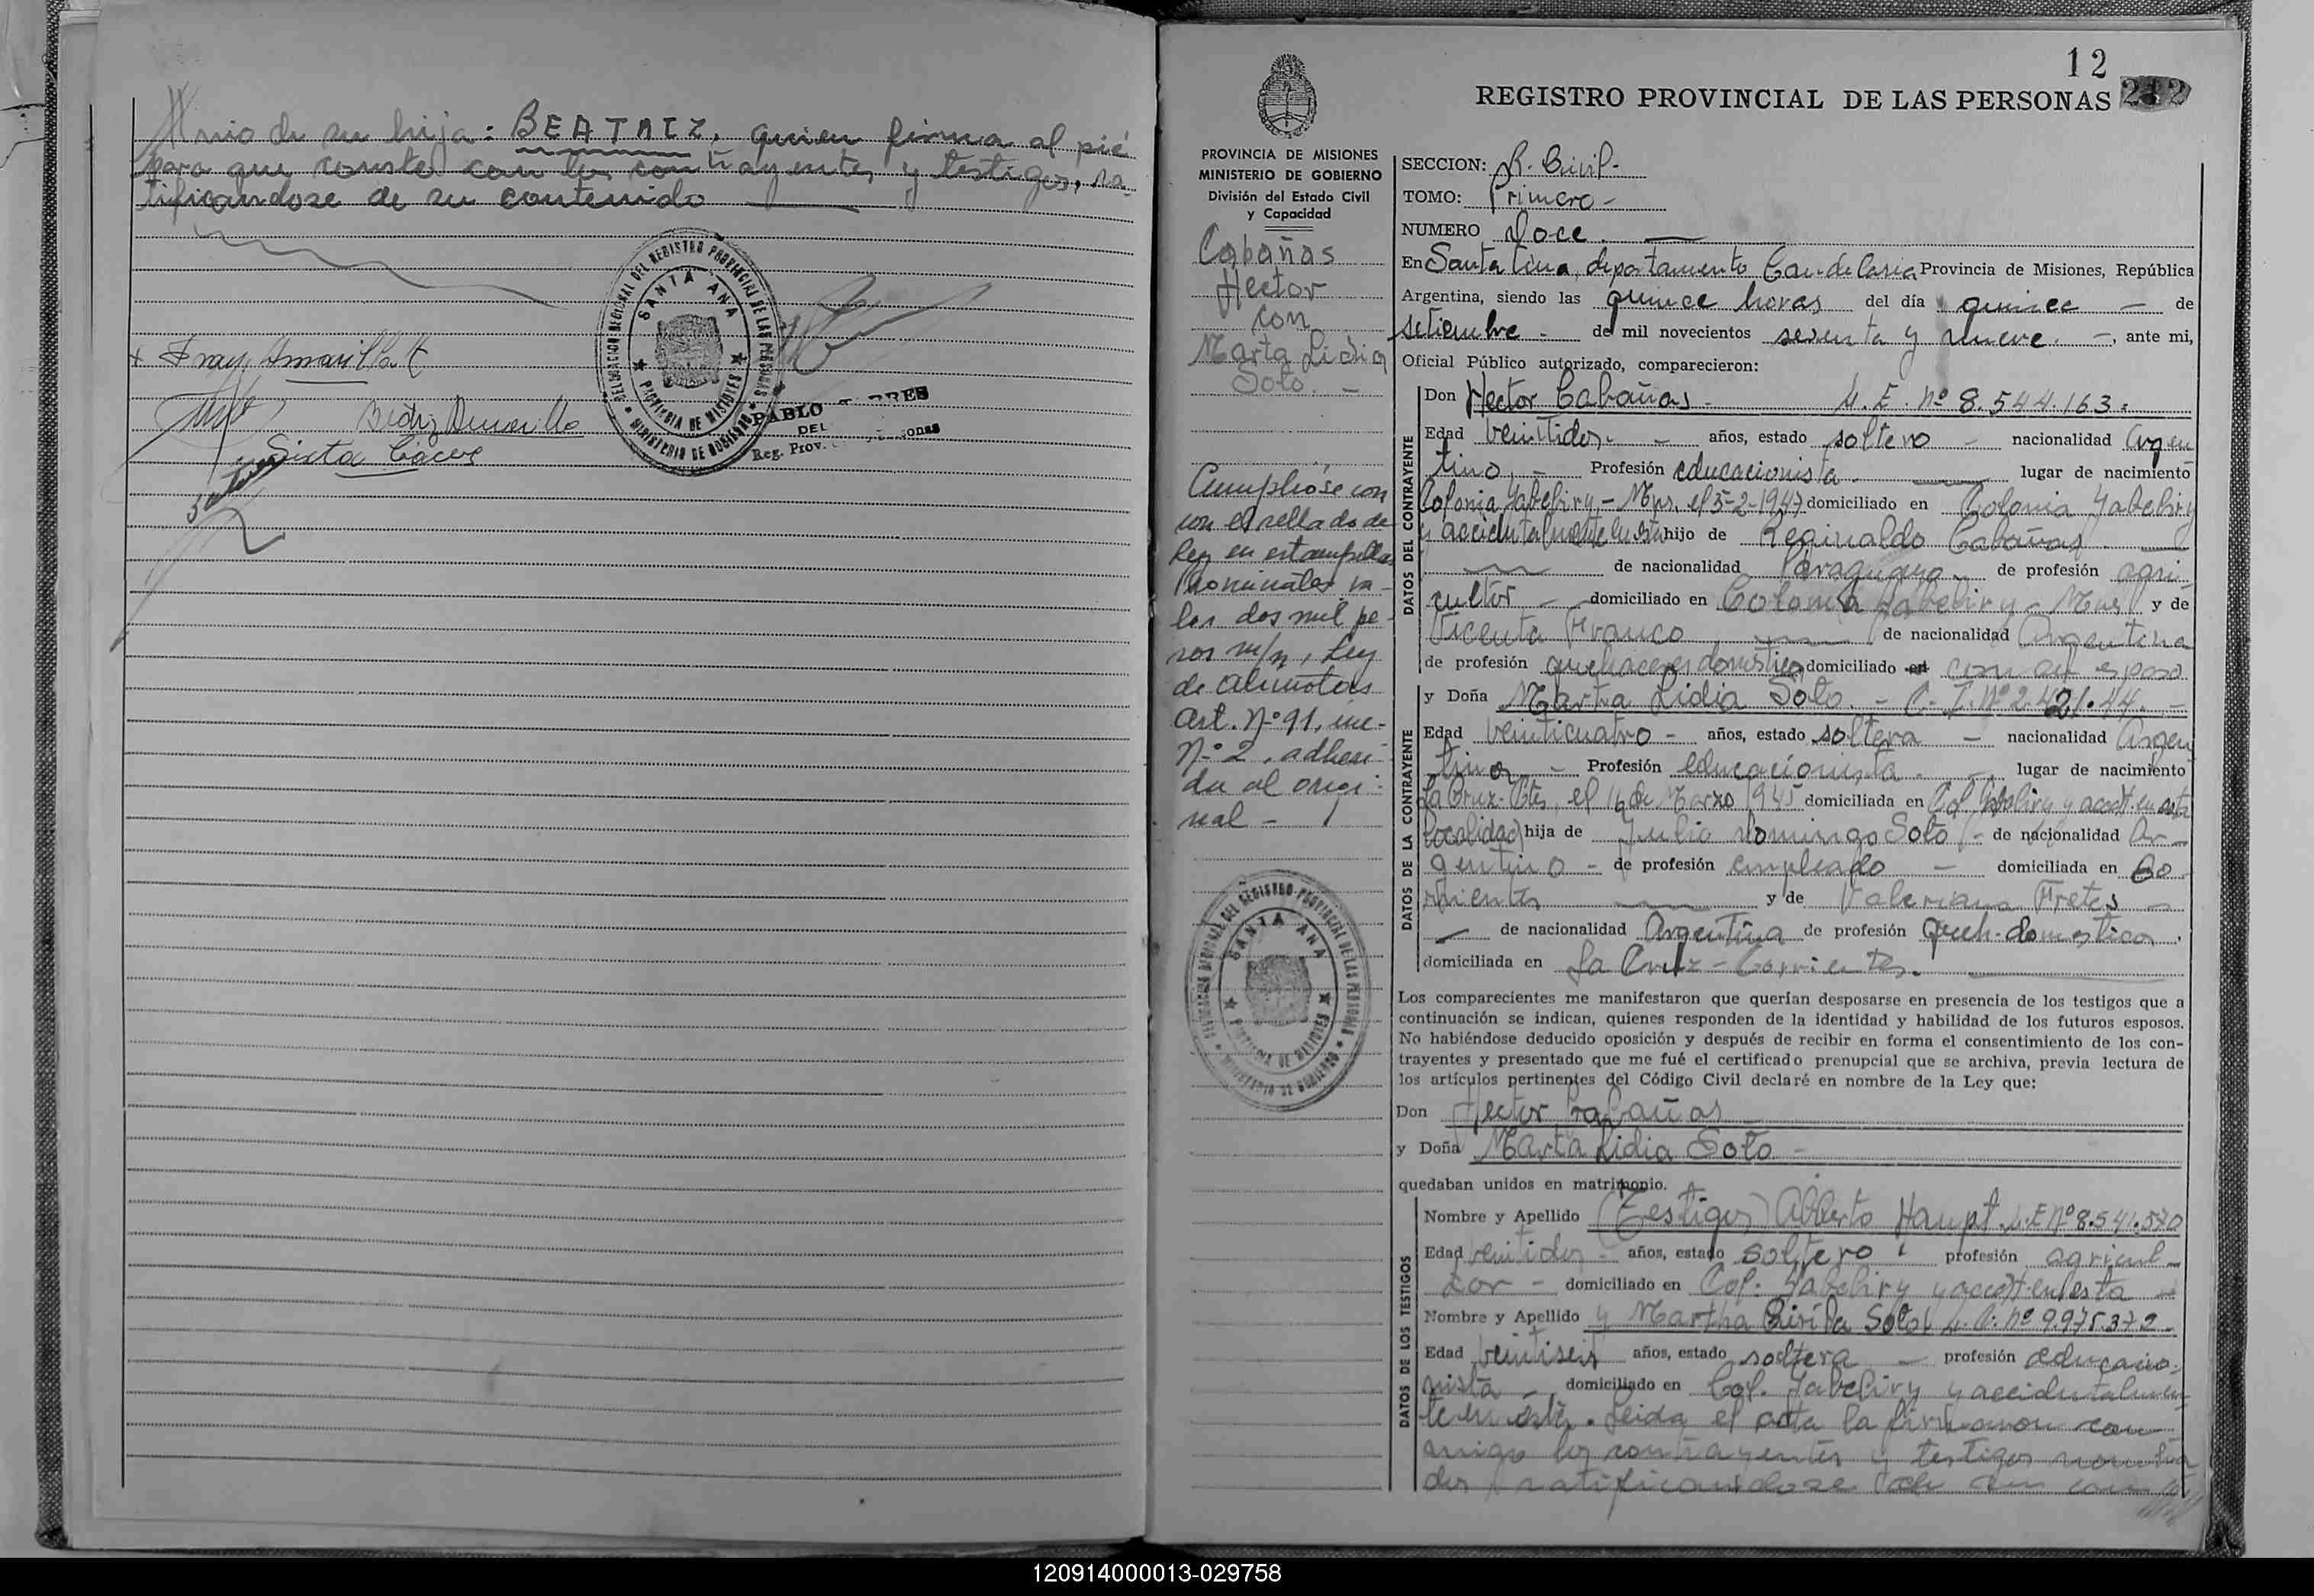 monio de su hija: BEATRIZ, quien firma al pié
para que conste con los contrayentes y testigos, ra-
tificandose de su contenido
DELEGACION REGIONAL DEL REGISTRO PROVINCIAL DE LAS PERSONAS
SANTA ANA
PROVINCIA DE MISIONES
MINISTERIO DE GOBIERNO
PABLO
DEL
Reg. Prov.
Sixta
12
REGISTRO PROVINCIAL DE LAS PERSONAS 212
PROVINCIA DE MISIONES
MINISTERIO DE GOBIERNO
División del Estado Civil
y Capacidad
Cabañas
Hector
con
Marta Lidia
Soto. -
Cumplióse con
con el sellado de
ley en estampillas
va-
lor dos mil pe-
sos m/n, Ley
de
art. Nº 91, inc.
Nº 2, adheri-
da al origi-
nal -
DELEGACION REGIONAL DEL REGISTRO PROVINCIAL DE LAS PERSONAS
SANTA ANA
PROVINCIA DE MISIONES
MINISTERIO DE GOBIERNO
SECCION: R. Civil -
TOMO: Primero -
NUMERO Doce. -
En Santa Ana, departamento Candelaria Provincia de Misiones, República
Argentina, siendo las quince horas del día quince - de
setiembre - de mil novecientos sesenta y nueve. -, ante mi,
Oficial Público autorizado, comparecieron:
DATOS DEL CONTRAYENTE
Don Hector Cabañas - L.E. nº 8.544.163 -
Edad veintidos - años, estado soltero - nacionalidad Argen
tino - Profesión educacionista. - lugar de nacimiento
Colonia Yabebiry - Mns. el 5-2-1947 domiciliado en Colonia Yabebiry
y accidentalmente en ésta hijo de Reginaldo Cabañas. -
de nacionalidad Paraguaya - de profesión agri-
cultor - domiciliado en Colonia Yabebiry - Mns y de
Vicenta Franco - de nacionalidad Argentina
de profesión quehaceres domésticos domiciliado en con su esposo
DATOS DE LA CONTRAYENTE
y Doña Marta Lidia Soto. - C.I. Nº 2.421.44. -
Edad veinticuatro - años, estado soltera - nacionalidad Argen
tina - Profesión educacionista. - lugar de nacimiento
La Cruz - Ctes, el de Marzo 1945 domiciliada en Col Yabebiry y accdt. en esta
localidad hija de Julio Domingo Soto - de nacionalidad Ar-
gentino - de profesión empleado - domiciliada en Co-
rrientes y de Valeriana Fretes -
- de nacionalidad Argentina de profesión Queh. domesticos.
domiciliada en La Cruz - Corrientes.
Los comparecientes me manifestaron que querían desposarse en presencia de los testigos que a
continuación se indican, quienes responden de la identidad y habilidad de los futuros esposos.
No habiéndose deducido oposición y después de recibir en forma el consentimiento de los con-
trayentes y presentado que me fué el certificado prenupcial que se archiva, previa lectura de
los artículos pertinentes del Código Civil declaré en nombre de la Ley que:
Don Hector Cabañas
y Doña Marta Lidia Soto -
quedaban unidos en matrimonio.
DATOS DE LOS TESTIGOS
Nombre y Apellido (Testigos) Alberto Haupt L.E Nº 8.541.570
Edad veintidos - años, estado soltero - profesión agricul-
tor - domiciliado en Col. Yabebiry y accdt. en esta -
Nombre y Apellido y Martha Soto L.C. nº 9.975.372 -
Edad veintiseis años, estado soltera - profesión educacio-
nista - domiciliado en Col. Yabebiry y accidentalmen-
te en ésta. Leida el acta la firmaron con-
migo los contrayentes y testigos nombra
dos ratificandose de su
120914000013-029758